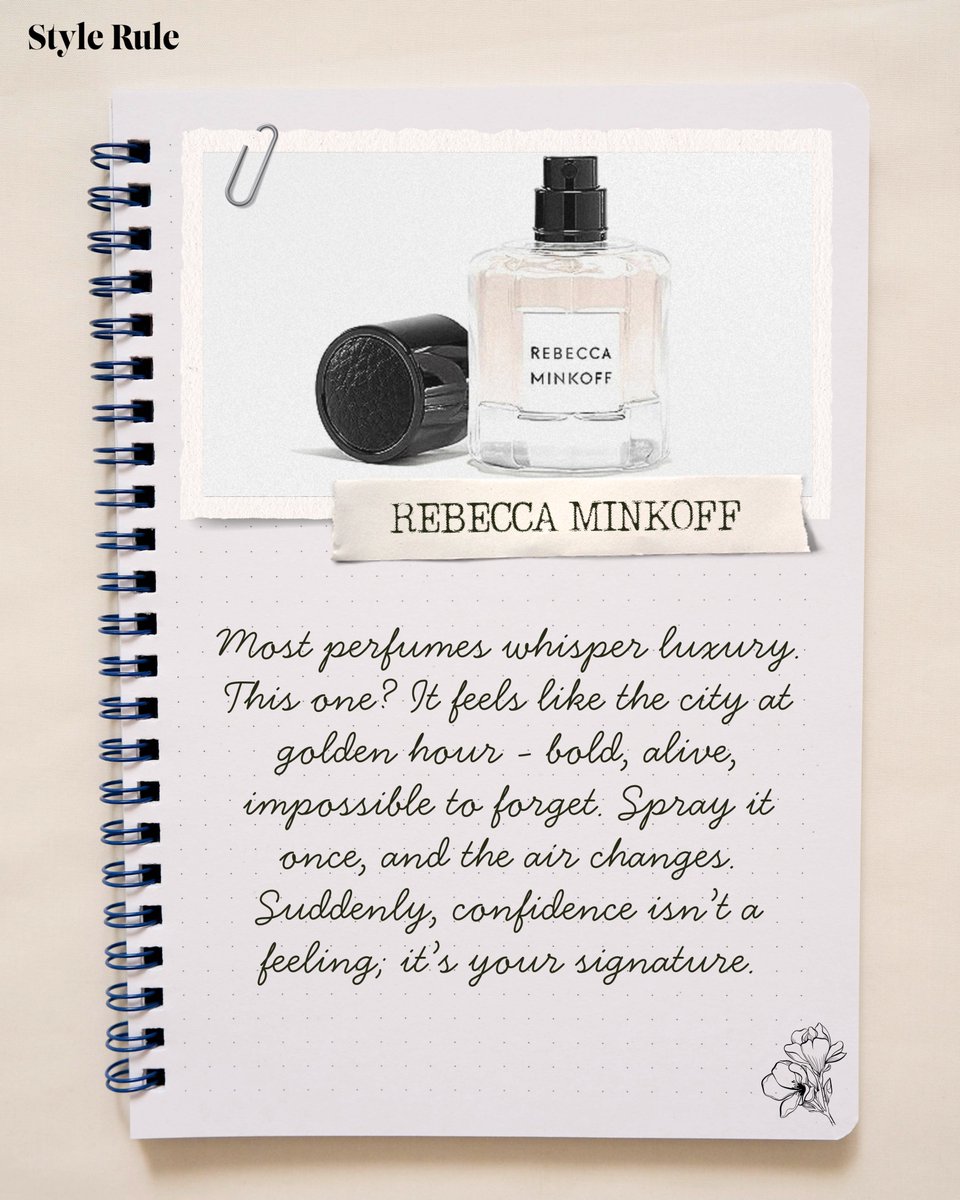 Style Rule
REBECCA
MINKOFF
REBECCA MINKOFF
Most perfumes whisper luxury.
This one? It feels like the city at
golden hour – bold, alive,
impossible to forget. Spray it
once, and the air changes.
Suddenly, confidence isn’t a
feeling; it’s your signature.